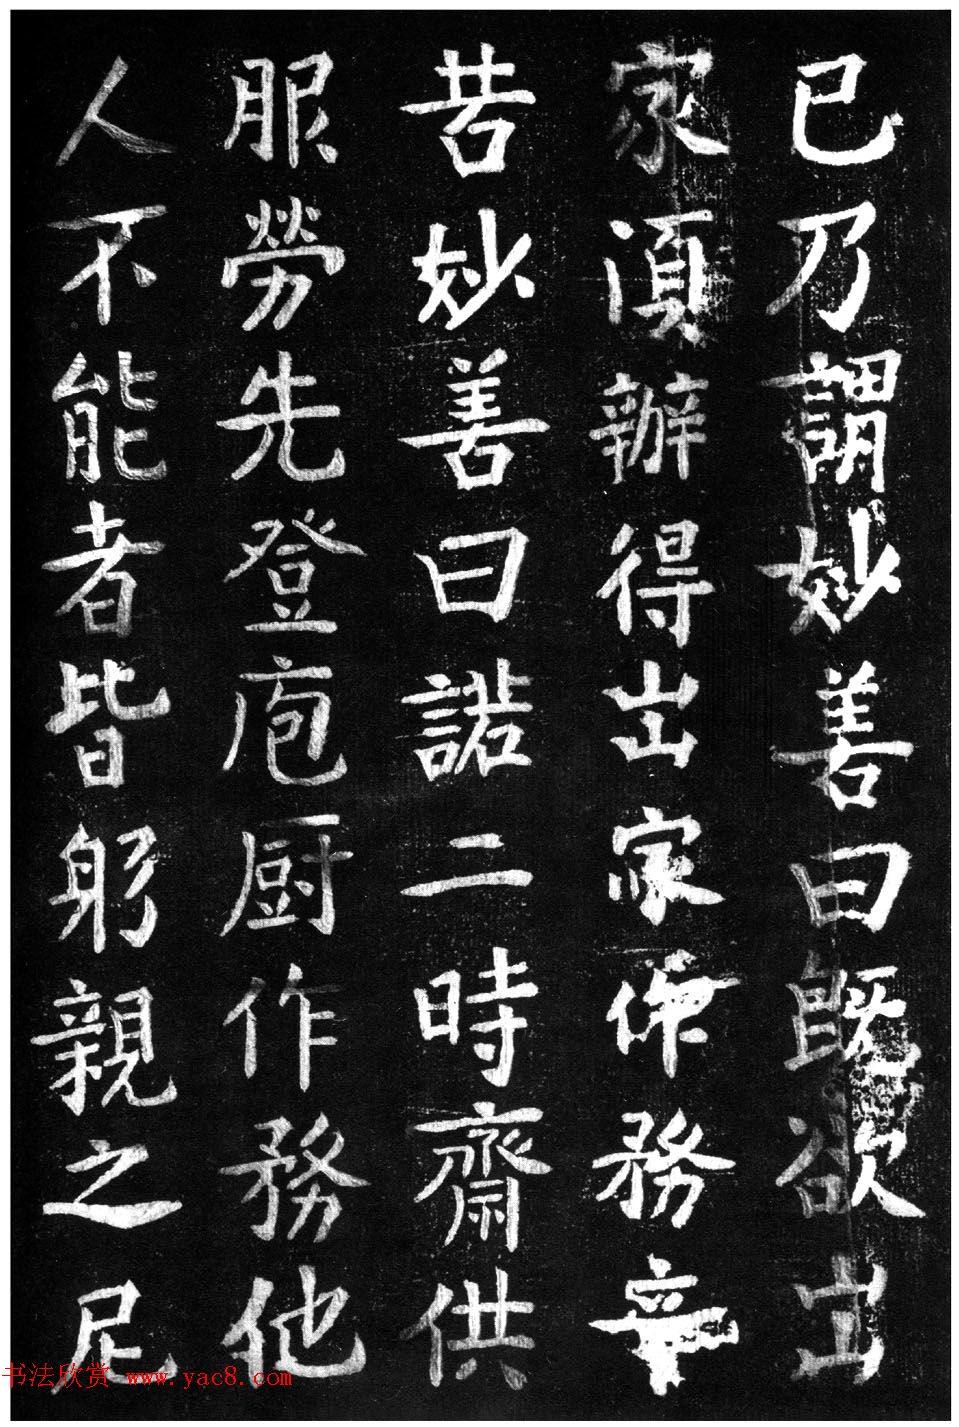 已乃謂妙善曰既欲出
家須辦得出家作務辛
苦妙善曰諾二時齋供
服勞先登庖厨作務他
人不能者皆躬親之尼
书法欣赏 www.yac8.com